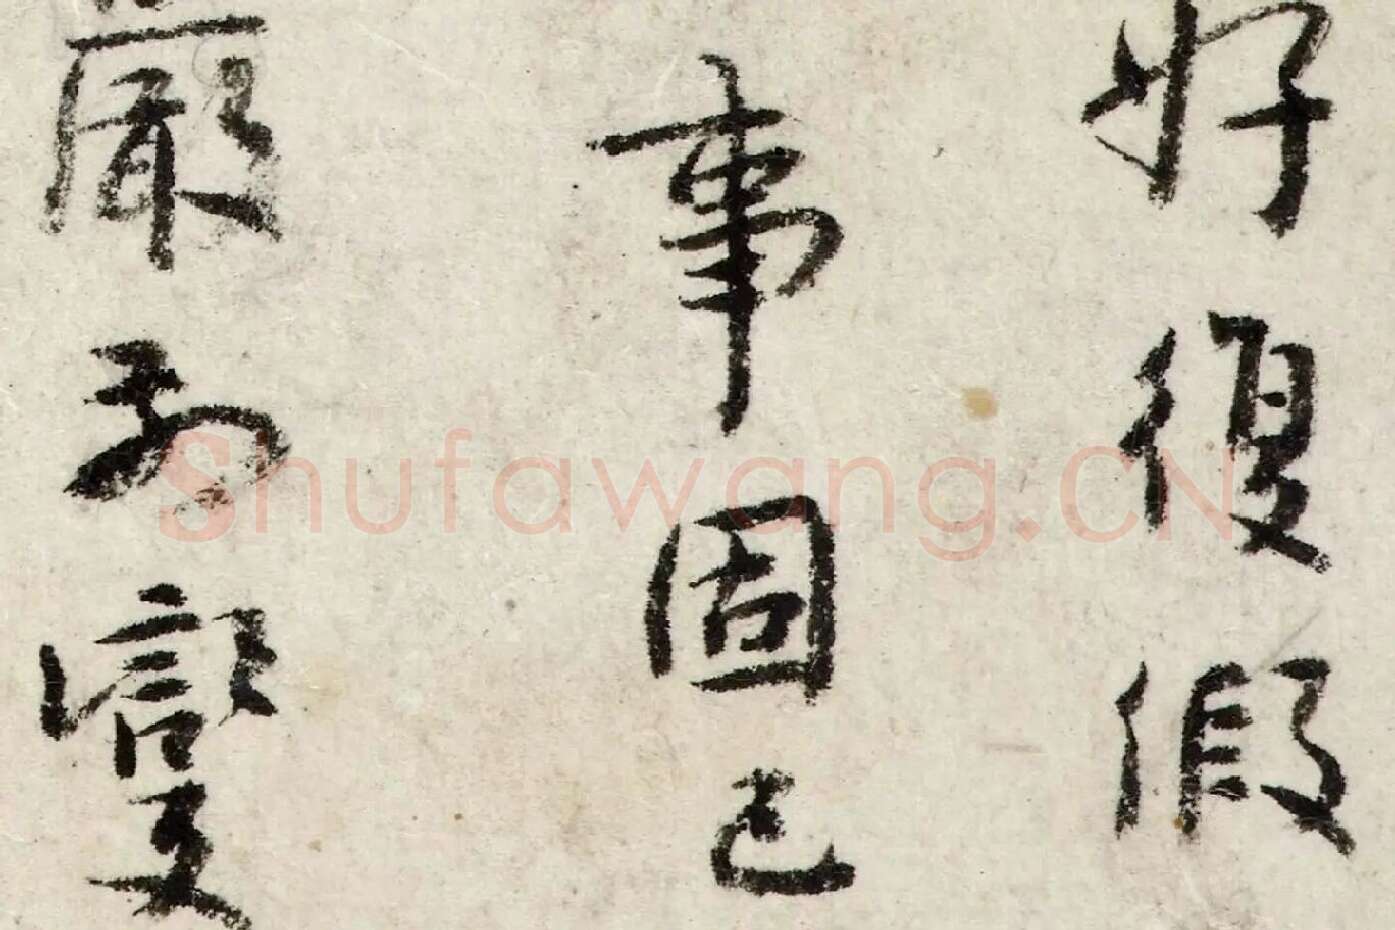 好復假
事固已
嚴變
Shufawang.CN